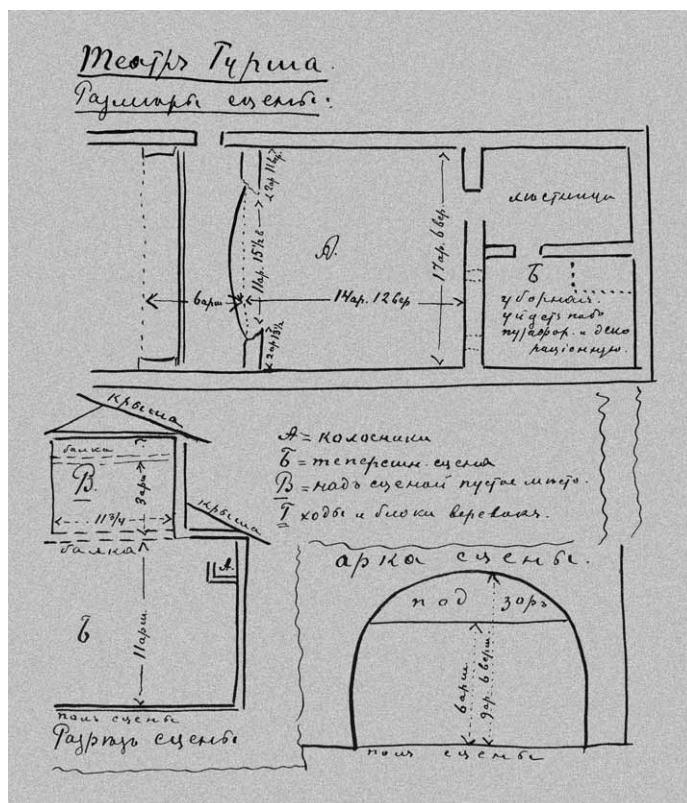 Театръ Гурша.
Размѣры сцены:
2 ар 11 вер.
11 ар. 15½ в
6 арш
А.
14 ар. 12 вер
17 ар. 6 вер.
2 ар 13½
лѣстница
Б
уборная.
пустое мѣсто.
крыша
балка
Г.
В.
3 арш
11 ¾
балка
крыша
А.
Б
11 арш.
полъ сцены
Разрѣзъ сцены
А = колосники
Б = теперешн. сцена
В = надъ сценой пустое мѣсто.
Г ходы и блоки веревокъ.
арка сцены.
под зоръ
6 арш.
9 ар. 6 верш.
полъ сцены